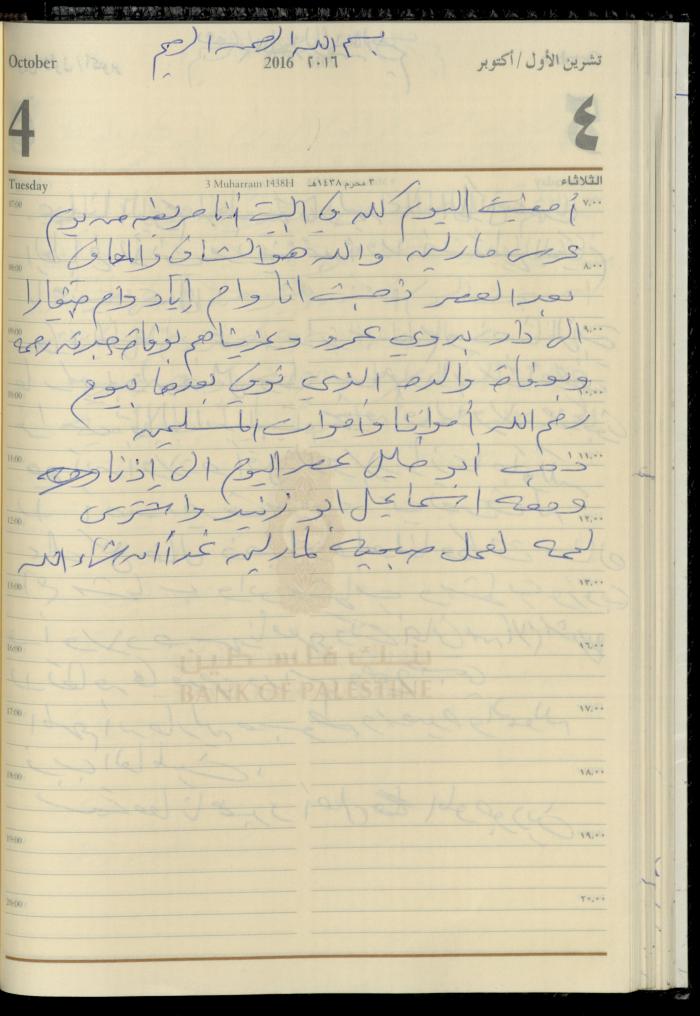 بسم الله الرحمن الرحيم
October 2016 ٢٠١٦ تشرين الأول / أكتوبر
4 ٤
Tuesday 3 Muharram 1438H ٣ محرم ١٤٣٨هـ الثلاثاء
أمضيت اليوم كله في البيت أنا مريضه من يوم
عرس مارلين والله هو الشافي والمعافي
بعد العصر ذهبت انا وام إياد وام
الى دار بدوي عمرو وعزيناهم بوفاة رحمه
وبوفاة والده الذي توفي بعدها بيوم
رحم الله أمواتنا وأموات المسلمين
ذهب أبو خليل عصر اليوم الى إذنا
ومعه اسماعيل ابو زنيد واشترى
لحمه لعمل صبحية لمارلين غداً ان شاء الله
07:00 ٧,٠٠
08:00 ٨,٠٠
09:00 ٩,٠٠
10:00 ١٠,٠٠
11:00 ١١,٠٠
12:00 ١٢,٠٠
١٣,٠٠
16:00 ١٦,٠٠
17:00 ١٧,٠٠
18:00 ١٨,٠٠
19:00 ١٩,٠٠
20:00 ٢٠,٠٠
بنك فلسطين
BANK OF PALESTINE